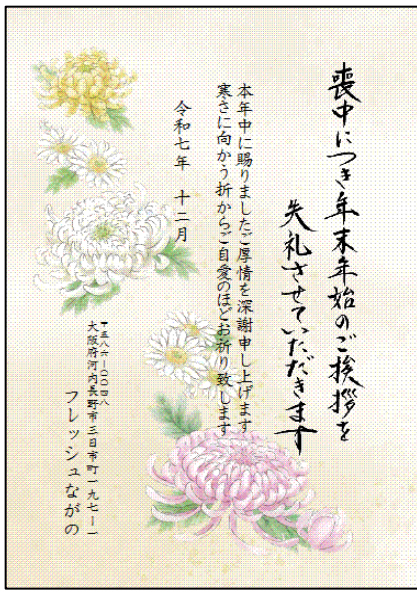 喪中につき年末年始のご挨拶を
失礼させていただきます
本年中に賜りましたご厚情を深謝申し上げます
寒さに向かう折からご自愛のほどお祈り致します
令和七年　十二月
〒五八六－〇〇四八
大阪府河内長野市三日市町一九七－一
フレッシュながの